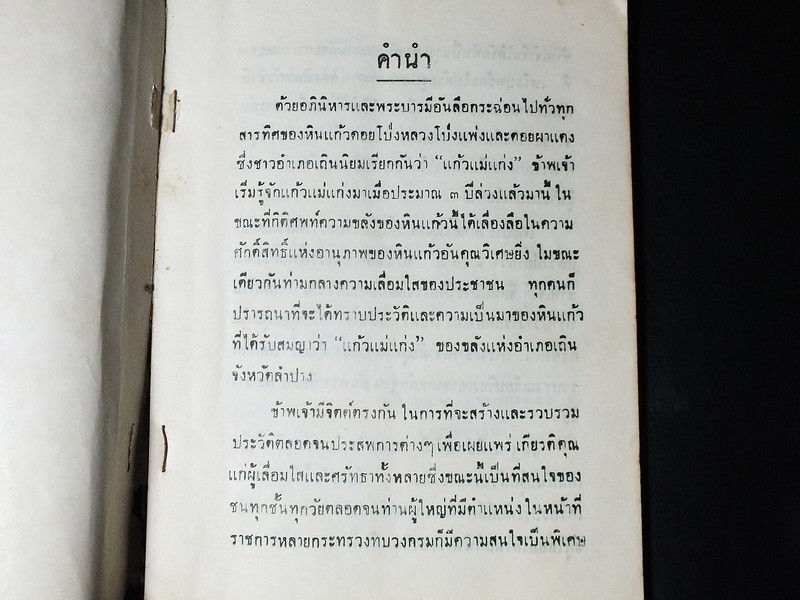 คำนำ
ด้วยอภินิหารและพระบารมีอันลือกระฉ่อนไปทั่วทุก
สารทิศของหินแก้วดอยโป่งหลวงโป่งแพ่งและดอยผาแดง
ซึ่งชาวอำเภอเถินนิยมเรียกกันว่า “แก้วแม่แก่ง” ข้าพเจ้า
เริ่มรู้จักแก้วแม่แก่งมาเมื่อประมาณ ๓ ปีล่วงแล้วมานี้ ใน
ขณะที่กิติศพท์ความขลังของหินแก้วนี้ได้เลื่องลือในความ
ศักดิ์สิทธิ์แห่งอานุภาพของหินแก้วอันคุณวิเศษยิ่ง ในขณะ
เดียวกันท่ามกลางความเลื่อมใสของประชาชน ทุกคนก็
ปรารถนาที่จะได้ทราบประวัติและความเป็นมาของหินแก้ว
ที่ได้รับสมญาว่า “แก้วแม่แก่ง” ของขลังแห่งอำเภอเถิน
จังหวัดลำปาง
ข้าพเจ้ามีจิตต์ตรงกัน ในการที่จะสร้างและรวบรวม
ประวัติตลอดจนประสพการต่างๆ เพื่อเผยแพร่ เกียรติคุณ
แก่ผู้เลื่อมใสและศรัทธาทั้งหลายซึ่งขณะนี้เป็นที่สนใจของ
ชนทุกชั้นทุกวัยตลอดจนท่านผู้ใหญ่ที่มีตำแหน่ง ในหน้าที่
ราชการหลายกระทรวงทบวงกรมก็มีความสนใจเป็นพิเศษ